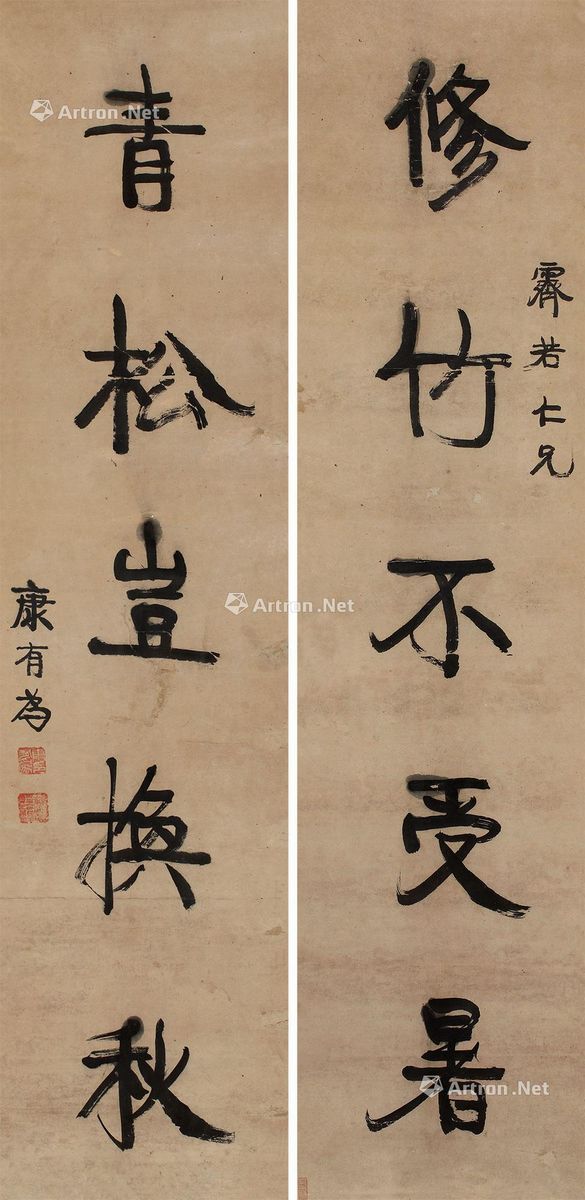 霽若仁兄
修竹不受暑
青松豈換秋
康有為
Artron.Net
Artron.Net
Artron.Net